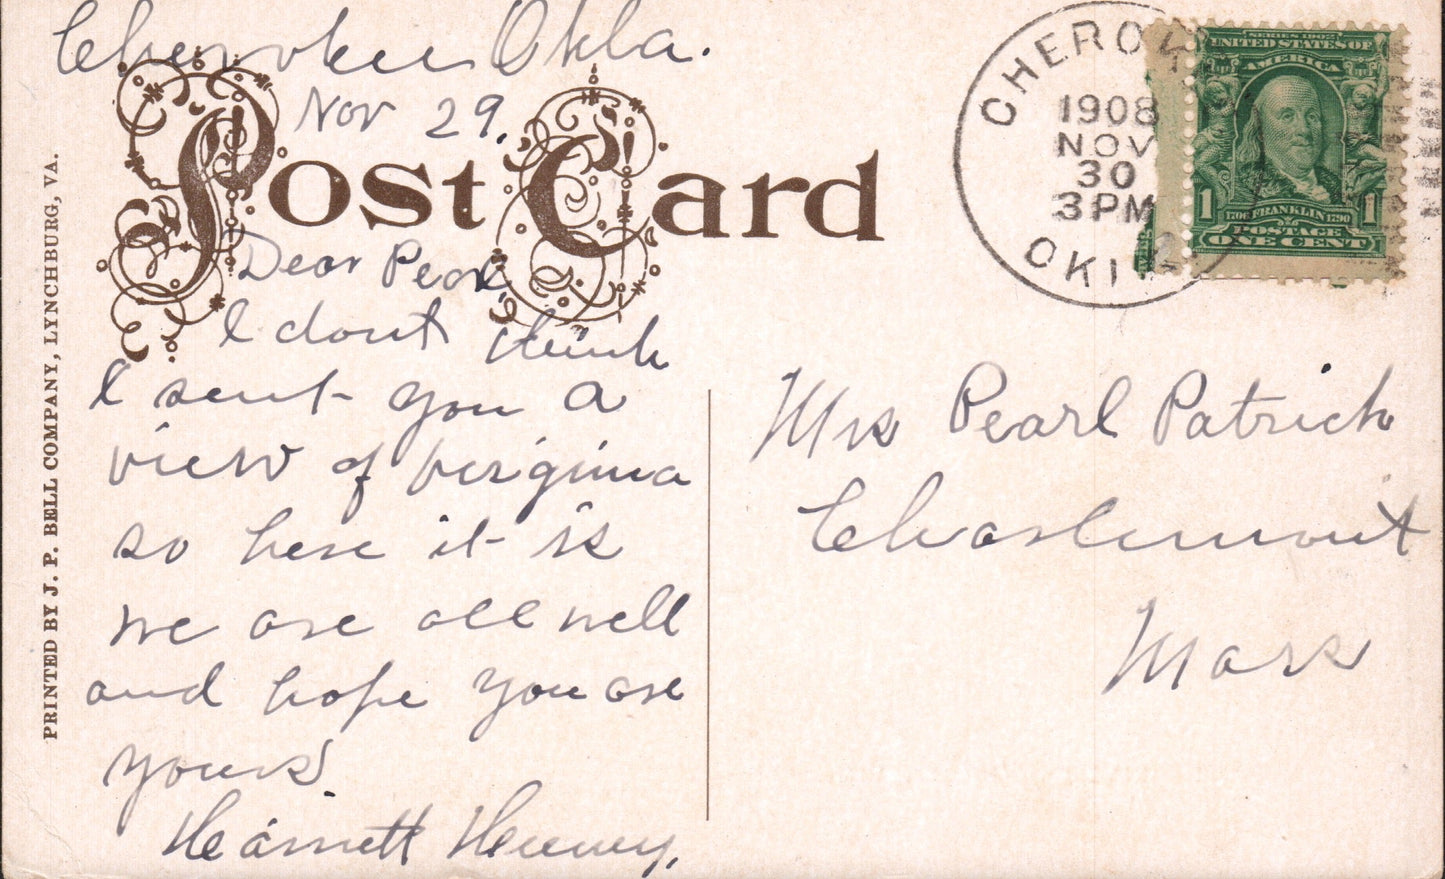 Cherokee Okla.
Nov 29.
Post Card
Dear Pearl
I dont think
I sent you a
view of Virginia
so here it is
we are all well
and hope you are
yours
Harriett
PRINTED BY J. P. BELL COMPANY, LYNCHBURG, VA.
CHERO
1908
NOV
30
3PM
OKL
SERIES 1902
UNITED STATES OF
AMERICA
1 1
1706 FRANKLIN 1790
POSTAGE
ONE CENT
Mrs Pearl Patrick
Charlemont
Mass